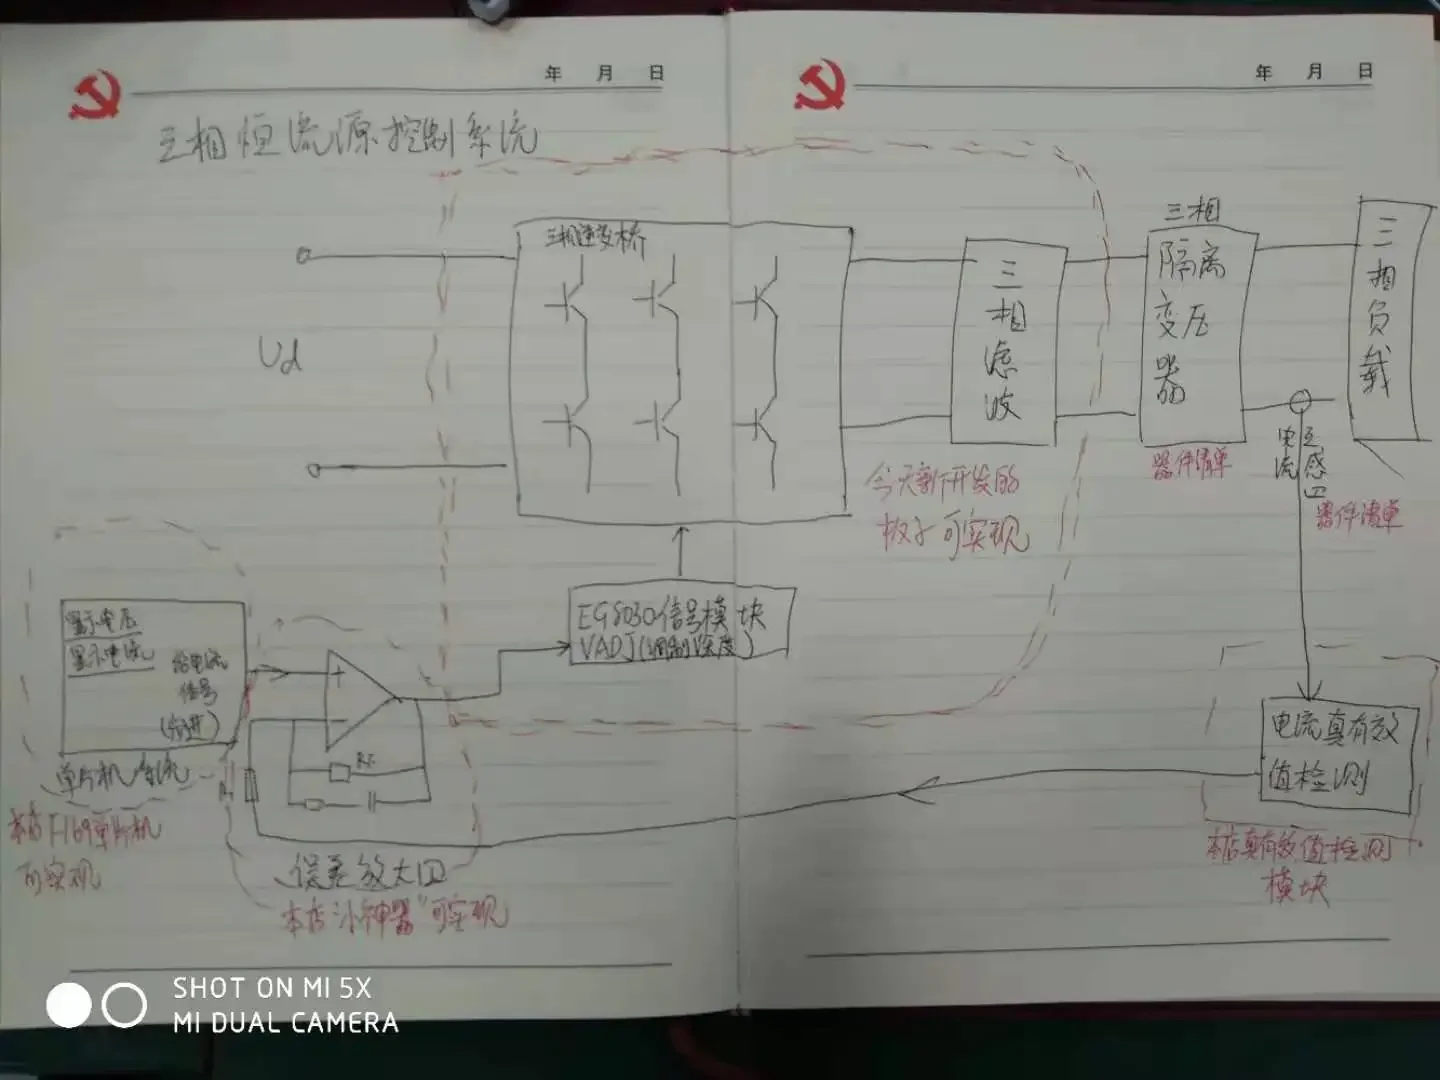 年 月 日
年 月 日
三相恒流源控制系统
三相逆变桥
Ud
三相滤波
三相
隔离变压器
三相负载
今天新开发的
板子可实现
器件清单
电流互感四
器件清单
EG8030信号模块
VADJ(调制深度)
显示电压
显示电流
给电流
信号
(步进)
+
-
RF
单片机系统
本店F169单片机
可实现
误差放大四
本店"小神器"可实现
电流真有效
值检测
本店真有效值检测
模块
SHOT ON MI 5X
MI DUAL CAMERA